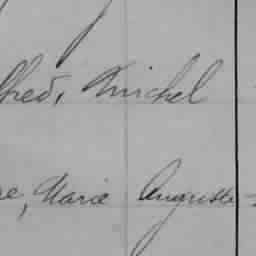 lfred, Knichel
e, Marie Auguste